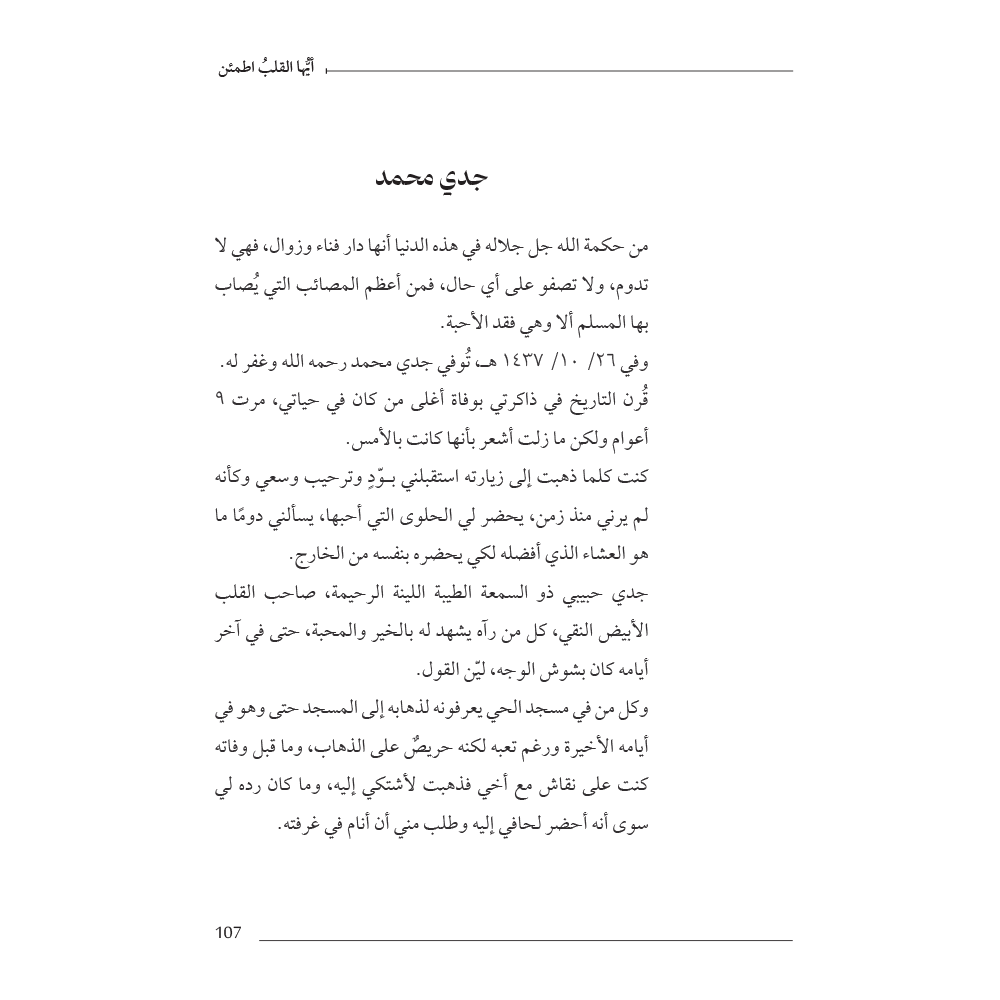 أيُّها القلبُ اطمئن
جدي محمد
من حكمة الله جل جلاله في هذه الدنيا أنها دار فناء وزوال، فهي لا
تدوم، ولا تصفو على أي حال، فمن أعظم المصائب التي يُصاب
بها المسلم ألا وهي فقد الأحبة.
وفي ٢٦/ ١٠/ ١٤٣٧ هـ، تُوفي جدي محمد رحمه الله وغفر له.
قُرن التاريخ في ذاكرتي بوفاة أغلى من كان في حياتي، مرت ٩
أعوام ولكن ما زلت أشعر بأنها كانت بالأمس.
كنت كلما ذهبت إلى زيارته استقبلني بـوّدٍ وترحيب وسعي وكأنه
لم يرني منذ زمن، يحضر لي الحلوى التي أحبها، يسألني دومًا ما
هو العشاء الذي أفضله لكي يحضره بنفسه من الخارج.
جدي حبيبي ذو السمعة الطيبة اللينة الرحيمة، صاحب القلب
الأبيض النقي، كل من رآه يشهد له بالخير والمحبة، حتى في آخر
أيامه كان بشوش الوجه، ليّن القول.
وكل من في مسجد الحي يعرفونه لذهابه إلى المسجد حتى وهو في
أيامه الأخيرة ورغم تعبه لكنه حريصٌ على الذهاب، وما قبل وفاته
كنت على نقاش مع أخي فذهبت لأشتكي إليه، وما كان رده لي
سوى أنه أحضر لحافي إليه وطلب مني أن أنام في غرفته.
107